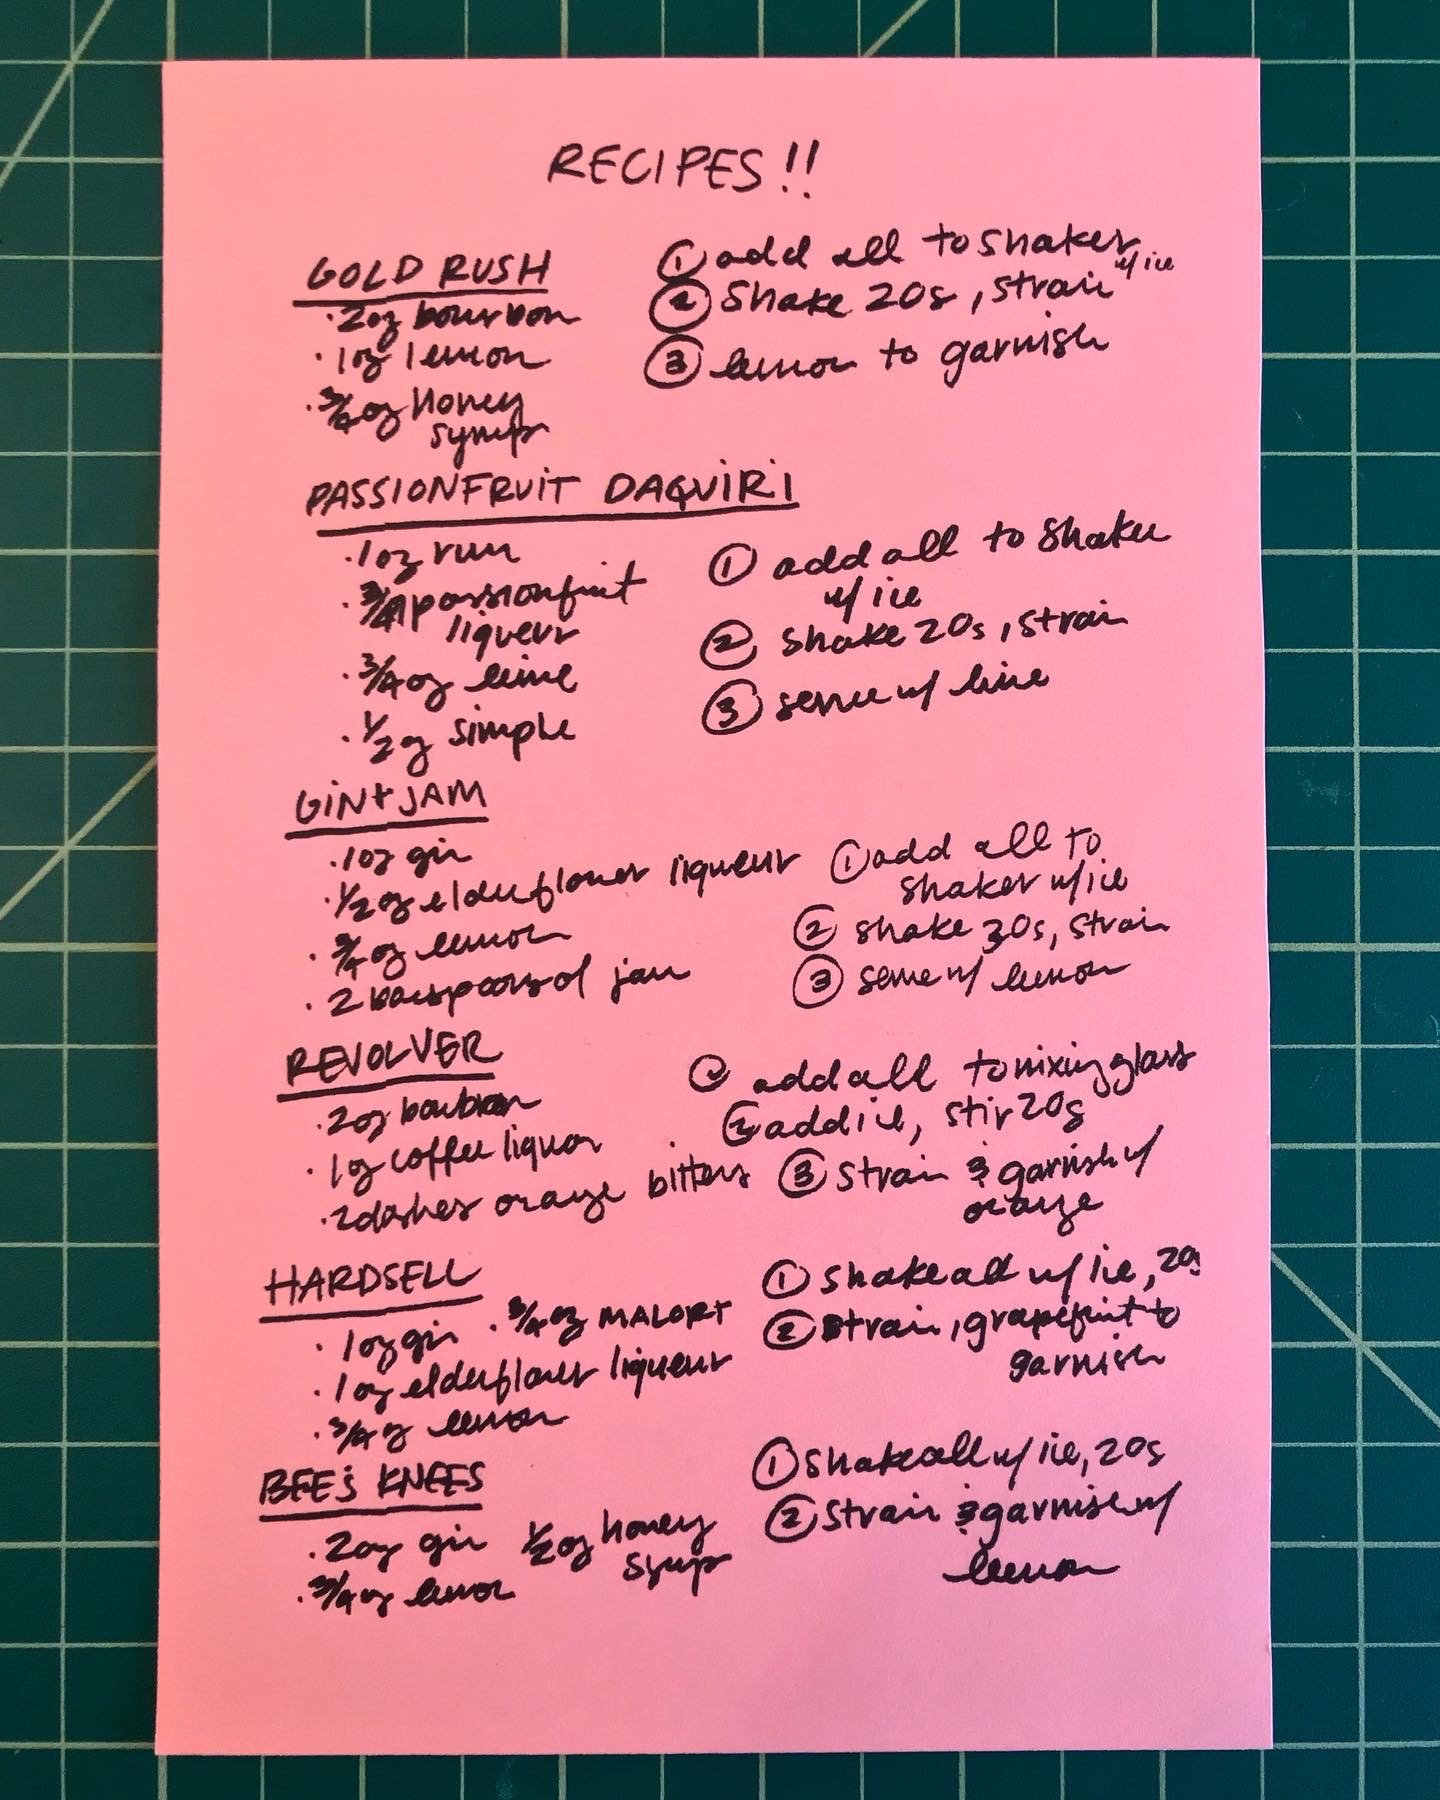 RECIPES!!
GOLD RUSH
· 2oz bourbon
· 1oz lemon
· 3/4oz honey
syrup
① add all to shaker
w/ ice
② Shake 20s, strain
③ lemon to garnish
PASSIONFRUIT DAQUIRI
· 1oz rum
· 3/4 passionfruit
liqueur
· 3/4 oz lime
· 1/2oz simple
① add all to shaker
w/ ice
② shake 20s, strain
③ serve w/ lime
GIN + JAM
· 1oz gin
· 1/2 oz elderflower liqueur
· 3/4 oz lemon
· 2 barspoons of jam
① add all to
shaker w/ ice
② shake 30s, strain
③ serve w/ lemon
REVOLVER
· 2oz bourbon
· 1oz coffee liquor
· 2dashes orange bitters
① add all to mixing glass
② add ice, stir 20s
③ strain & garnish w/
orange
HARDSELL
· 1oz gin · 3/4 oz MALORT
· 1oz elderflower liqueur
· 3/4 oz lemon
① Shake all w/ ice, 20s
② strain, grapefruit to
garnish
BEE'S KNEES
· 2oz gin
· 3/4 oz lemon
1/2oz honey
syrup
① shake all w/ ice, 20s
② strain & garnish w/
lemon